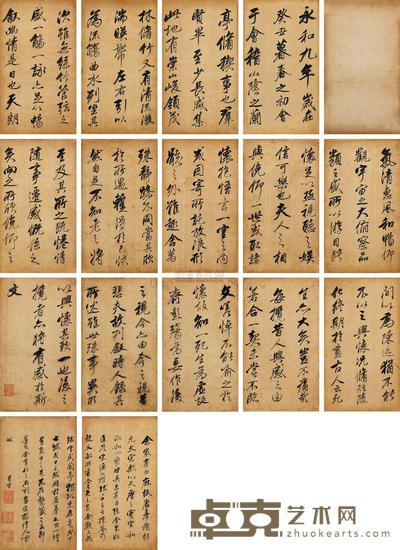 永和九年歲在
癸丑暮春之初會
于會稽山陰之蘭
亭脩禊事也羣
賢畢至少長咸集
此地有崇山峻領茂
林脩竹又有清流激
湍暎帶左右引以
為流觴曲水列坐其
次雖無絲竹管弦之
盛一觴一詠亦足以暢
敘幽情是日也天朗
氣清惠風和暢仰
觀宇宙之大俯察品
類之盛所以遊目騁
懷足以極視聽之娛
信可樂也夫人之相
與俯仰一世或取諸
懷抱悟言一室之內
或因寄所託放浪形
骸之外雖趣舍萬
殊靜躁不同當其欣
於所遇蹔得於己快
然自足不知老之將
至及其所之既惓情
隨事遷感慨係之
矣向之所欣俛仰之
間以為陳迹猶不能
不以之興懷況脩短隨
化終期於盡古人云死
生亦大矣豈不痛哉
每攬昔人興感之由
若合一契未嘗不臨
文嗟悼不能喻之於
懷固知一死生為虛誕
齊彭殤為妄作後
之視今亦由今之視昔
悲夫故列敘時人錄其
所述雖世殊事異所
以興懷其致一也後之
攬者亦將有感於斯
文
卓克艺术网
zhuokearts.com